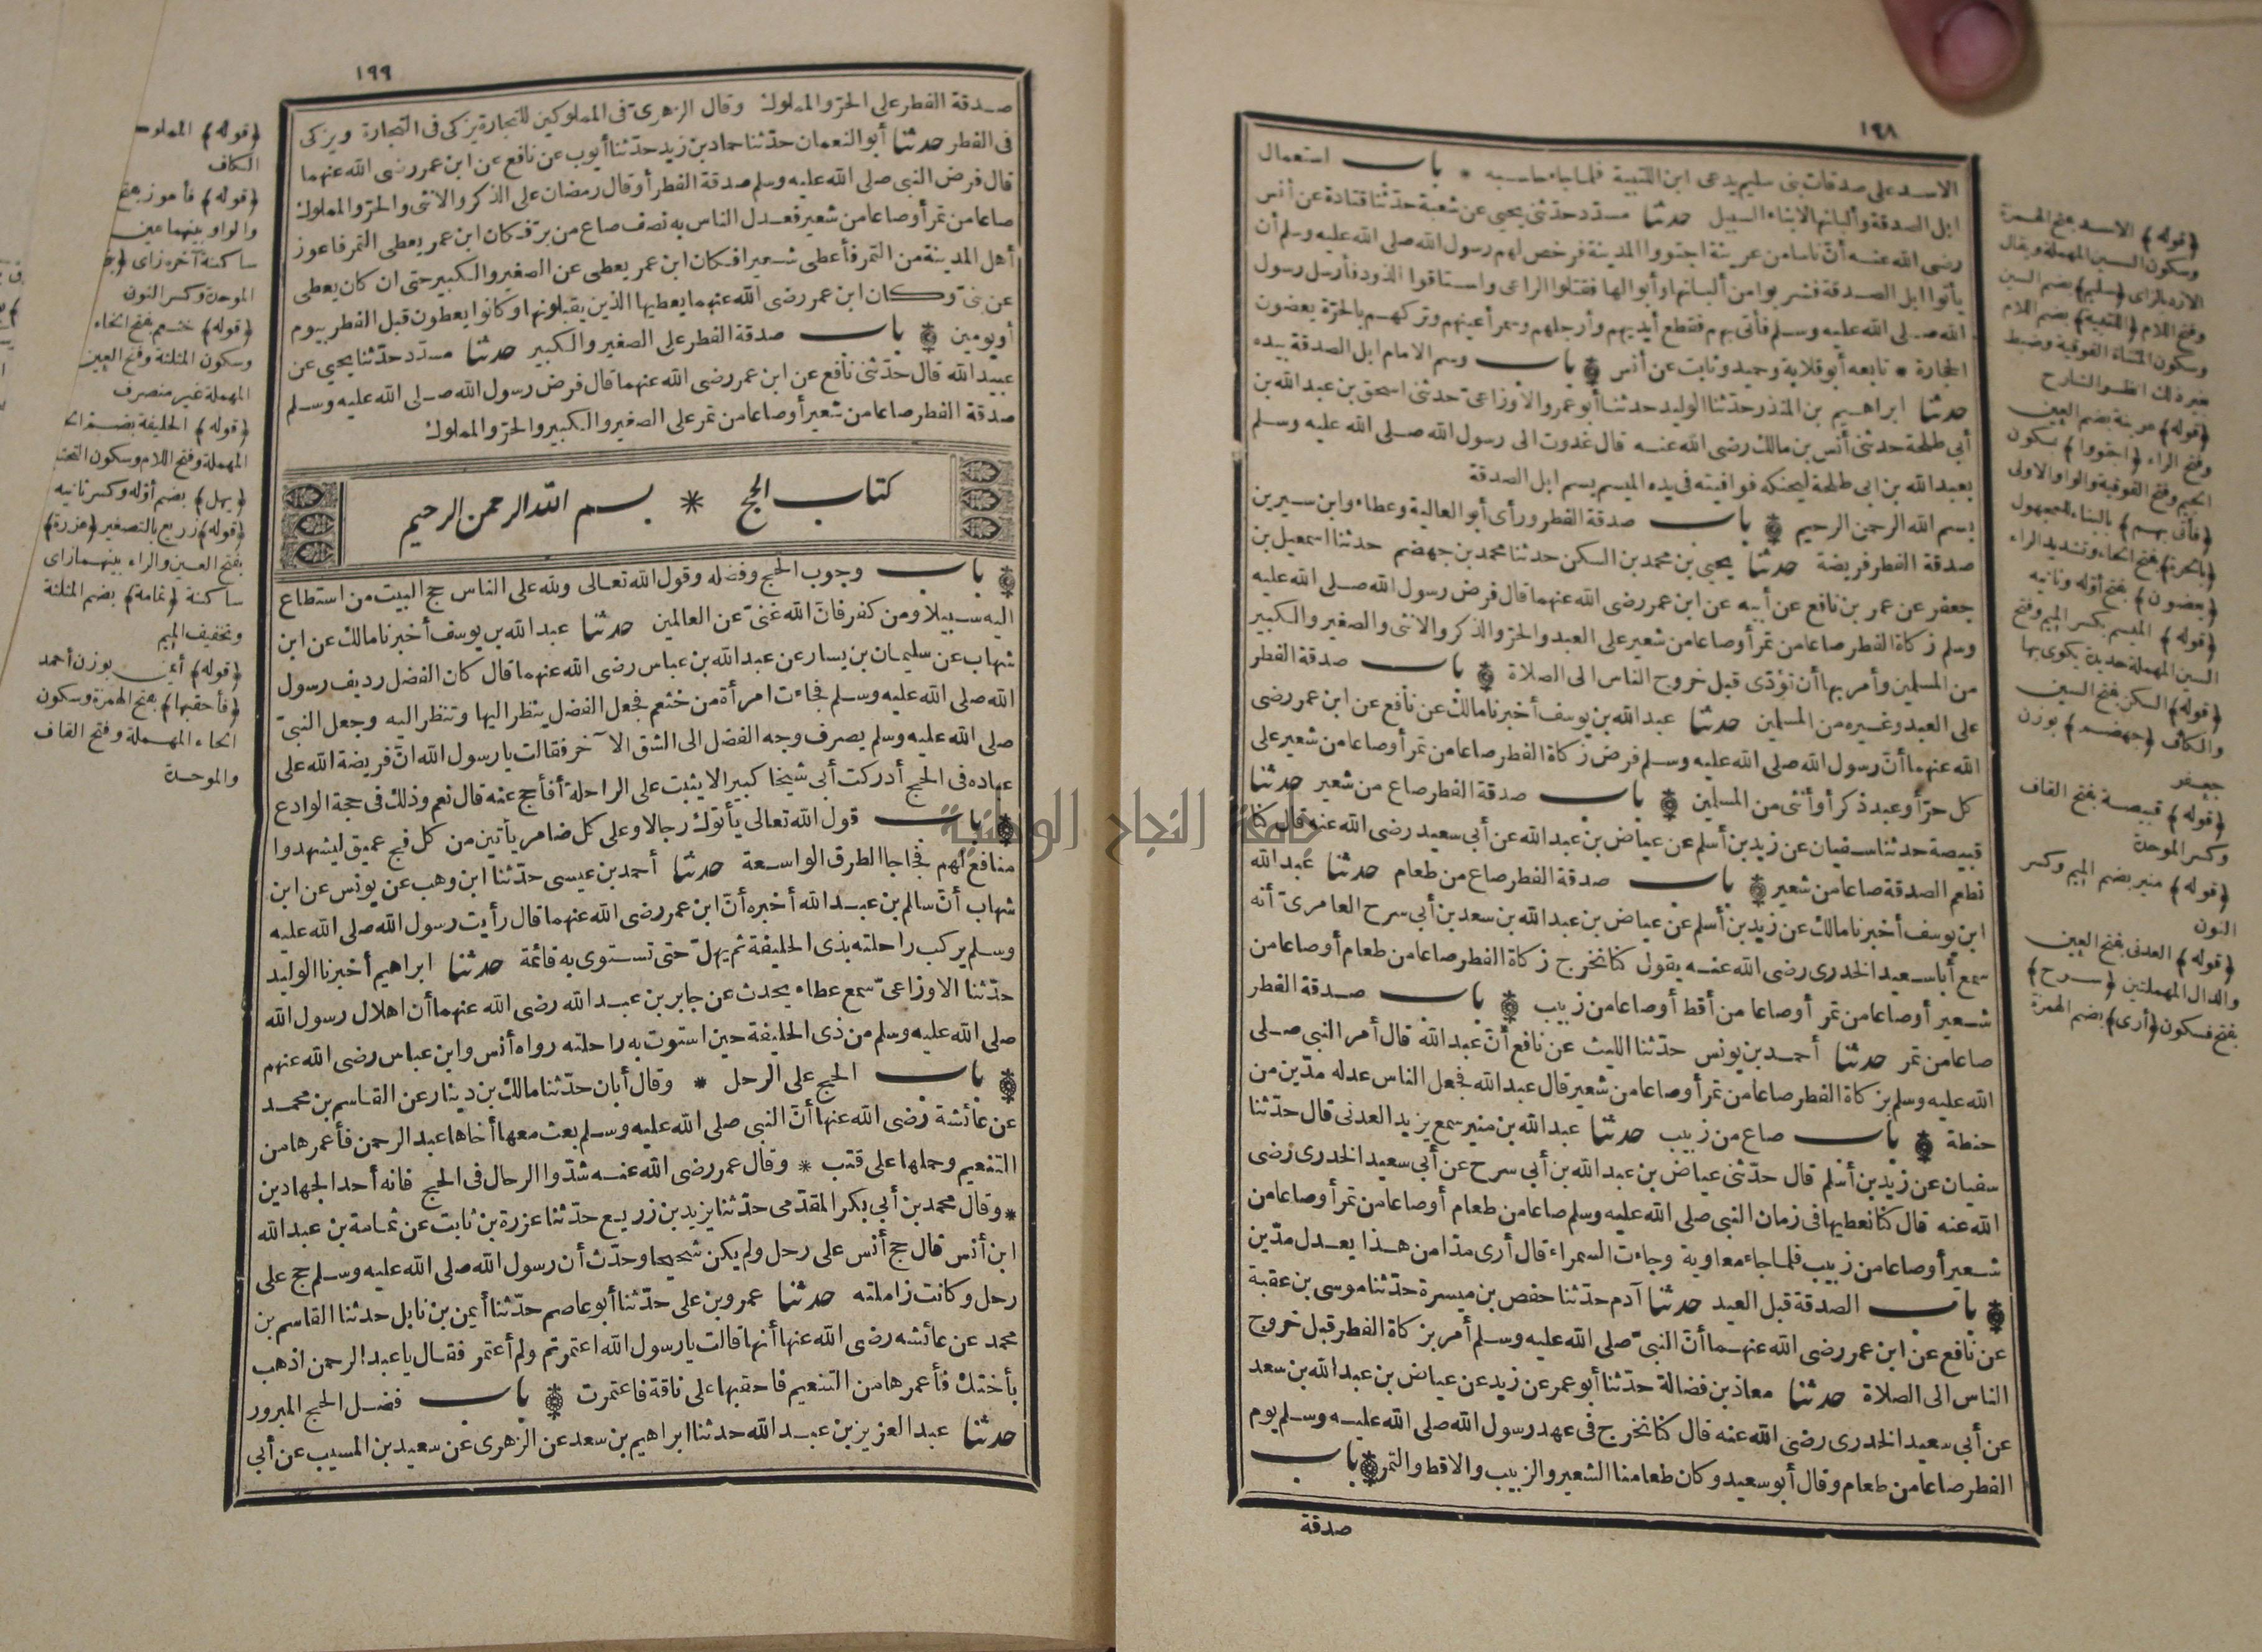 ١٩٨
الاسد على صدقات بنى سليم يدعى ابن اللتبية فلما جاء حاسبه * باب استعمال
ابل الصدقة وألبانها لابناء السبيل حدثنا مسدد حدثنى يحيى عن شعبة حدثنا قتادة عن أنس
رضى الله عنه أن ناسا من عرينة اجتووا المدينة فرخص لهم رسول الله صلى الله عليه وسلم أن
يأتوا ابل الصدقة فشربوا من ألبانها وأبوالها فقتلوا الراعى واستاقوا الذود فأرسل رسول
الله صلى الله عليه وسلم فأتى بهم فقطع أيديهم وأرجلهم وسمر أعينهم وتركهم بالحرّة يعضون
الحجارة * تابعه أبو قلابة وحميد وثابت عن أنس باب وسم الامام ابل الصدقة بيده
حدثنا ابراهيم بن المنذر حدّثنا الوليد حدثنا أبو عمرو الاوزاعىّ حدثنى اسحق بن عبد الله بن
أبى طلحة حدثنى أنس بن مالك رضى الله عنه قال غدوت الى رسول الله صلى الله عليه وسلم
بعبد الله بن ابى طلحة ليحنكه فوافيته فى يده الميسم يسم ابل الصدقة
بسم الله الرحمن الرحيم باب صدقة الفطر ورأى أبو العالية وعطاء وابن سيرين
صدقة الفطر فريضة حدثنا يحيى بن محمد بن السكن حدثنا محمد بن جهضم حدثنا اسمعيل بن
جعفر عن عمر بن نافع عن أبيه عن ابن عمر رضى الله عنهما قال فرض رسول الله صلى الله عليه
وسلم زكاة الفطر صاعا من تمر أو صاعا من شعير على العبد والحرّ والذكر والانثى والصغير والكبير
من المسلمين وأمر بها أن تؤدّى قبل خروج الناس الى الصلاة باب صدقة الفطر
على العبد وغيره من المسلمين حدثنا عبد الله بن يوسف أخبرنا مالك عن نافع عن ابن عمر رضى
الله عنهما أنّ رسول الله صلى الله عليه وسلم فرض زكاة الفطر صاعا من تمر أو صاعا من شعير على
كل حرّ أو عبد ذكر أو أنثى من المسلمين باب صدقة الفطر صاع من شعير حدثنا
قبيصة حدثنا سفيان عن زيد بن أسلم عن عياض بن عبد الله عن أبى سعيد رضى الله عنه قال كنا
نطعم الصدقة صاعا من شعير باب صدقة الفطر صاع من طعام حدثنا عبد الله
ابن يوسف أخبرنا مالك عن زيد بن أسلم عن عياض بن عبد الله بن سعد بن أبى سرح العامرىّ أنه
سمع أبا سعيد الخدرى رضى الله عنه يقول كنا نخرج زكاة الفطر صاعا من طعام أو صاعا من
شعير أو صاعا من تمر أو صاعا من أقط أو صاعا من زبيب باب صدقة الفطر
صاعا من تمر حدثنا أحمد بن يونس حدّثنا الليث عن نافع أنّ عبد الله قال أمر النبى صلى
الله عليه وسلم بزكاة الفطر صاعا من تمر أو صاعا من شعير قال عبد الله فجعل الناس عدله مدّين من
حنطة باب صاع من زبيب حدثنا عبد الله بن منير سمع يزيد العدنى قال حدّثنا
سفيان عن زيد بن أسلم قال حدّثنى عياض بن عبد الله بن أبى سرح عن أبى سعيد الخدرى رضى
الله عنه قال كنا نعطيها فى زمان النبى صلى الله عليه وسلم صاعا من طعام أو صاعا من تمر أو صاعا من
شعير أو صاعا من زبيب فلما جاء معاوية وجاءت السمراء قال أرى مدّا من هذا يعدل مدّين
باب الصدقة قبل العيد حدثنا آدم حدّثنا حفص بن ميسرة حدّثنا موسى بن عقبة
عن نافع عن ابن عمر رضى الله عنهما أنّ النبىّ صلى الله عليه وسلم أمر بزكاة الفطر قبل خروج
الناس الى الصلاة حدثنا معاذ بن فضالة حدّثنا أبو عمر عن زيد عن عياض بن عبد الله بن سعد
عن أبى سعيد الخدرى رضى الله عنه قال كنا نخرج فى عهد رسول الله صلى الله عليه وسلم يوم
الفطر صاعا من طعام وقال أبو سعيد وكان طعامنا الشعير والزبيب والاقط والتمر باب
صدقة
(قوله) الاسد بفتح الهمزة
وسكون السين المهملة ويقال
الازد بالزاى (سليم) بضم السين
وفتح اللام (اللتبية) بضم اللام
وسكون المثناة الفوقية وضبط
بغير ذلك انظر الشارح
(قوله) عرينة بضم العين
وفتح الراء (اجتووا) بسكون
الجيم وفتح الفوقية والواو الاولى
(فأتى بهم) بالبناء للمجهول
(بالحرة) بفتح الحاء وتشديد الراء
(يعضون) بفتح أوّله وثانيه
(قوله) الميسم بكسر الميم وفتح
السين المهملة حديدة يكوى بها
(قوله) السكن بفتح السين
والكاف (جهضم) بوزن
جعفر
(قوله) قبيصة بفتح القاف
وكسر الموحدة
(قوله) منير بضم الميم وكسر
النون
(قوله) العدنى بفتح العين
والدال المهملتين (سرح)
بفتح فسكون (أرى) بضم الهمزة
١٩٩
صدقة الفطر على الحرّ والمملوك وقال الزهرىّ فى المملوكين للتجارة يزكى فى التجارة ويزكى
فى الفطر حدثنا أبو النعمان حدّثنا حماد بن زيد حدّثنا أيوب عن نافع عن ابن عمر رضى الله عنهما
قال فرض النبى صلى الله عليه وسلم صدقة الفطر أو قال رمضان على الذكر والانثى والحرّ والمملوك
صاعا من تمر أو صاعا من شعير فعدل الناس به نصف صاع من برّ فكان ابن عمر يعطى التمر فاعوز
أهل المدينة من التمر فأعطى شعيرا فكان ابن عمر يعطى عن الصغير والكبير حتى ان كان يعطى
عن بنىّ وكان ابن عمر رضى الله عنهما يعطيها الذين يقبلونها وكانوا يعطون قبل الفطر بيوم
أو يومين باب صدقة الفطر على الصغير والكبير حدثنا مسدّد حدّثنا يحيى عن
عبيد الله قال حدّثنى نافع عن ابن عمر رضى الله عنهما قال فرض رسول الله صلى الله عليه وسلم
صدقة الفطر صاعا من شعير أو صاعا من تمر على الصغير والكبير والحرّ والمملوك
كتاب الحج * بسم الله الرحمن الرحيم
باب وجوب الحج وفضله وقول الله تعالى ولله على الناس حج البيت من استطاع
اليه سبيلا ومن كفر فانّ الله غنىّ عن العالمين حدثنا عبد الله بن يوسف أخبرنا مالك عن ابن
شهاب عن سليمان بن يسار عن عبد الله بن عباس رضى الله عنهما قال كان الفضل رديف رسول
الله صلى الله عليه وسلم فجاءت امرأة من خثعم فجعل الفضل ينظر اليها وتنظر اليه وجعل النبىّ
صلى الله عليه وسلم يصرف وجه الفضل الى الشق الآخر فقالت يا رسول الله انّ فريضة الله على
عباده فى الحج أدركت أبى شيخا كبيرا لا يثبت على الراحلة أفأحج عنه قال نعم وذلك فى حجة الوداع
باب قول الله تعالى يأتوك رجالا وعلى كل ضامر يأتين من كل فج عميق ليشهدوا
منافع لهم فجاجا الطرق الواسعة حدثنا أحمد بن عيسى حدّثنا ابن وهب عن يونس عن ابن
شهاب أنّ سالم بن عبد الله أخبره أنّ ابن عمر رضى الله عنهما قال رأيت رسول الله صلى الله عليه
وسلم يركب راحلته بذى الحليفة ثم يهلّ حتى تستوى به قائمة حدثنا ابراهيم أخبرنا الوليد
حدّثنا الاوزاعىّ سمع عطاء يحدث عن جابر بن عبد الله رضى الله عنهما أن اهلال رسول الله
صلى الله عليه وسلم من ذى الحليفة حين استوت به راحلته رواه أنس وابن عباس رضى الله عنهم
باب الحج على الرحل * وقال أبان حدّثنا مالك بن دينار عن القاسم بن محمد
عن عائشة رضى الله عنها أنّ النبى صلى الله عليه وسلم بعث معها أخاها عبد الرحمن فأعمرها من
التنعيم وحملها على قتب * وقال عمر رضى الله عنه شدّوا الرحال فى الحج فانه أحد الجهادين
* وقال محمد بن أبى بكر المقدّمى حدّثنا يزيد بن زريع حدّثنا عزرة بن ثابت عن ثمامة بن عبد الله
ابن أنس قال حج أنس على رحل ولم يكن شحيحا وحدّث أن رسول الله صلى الله عليه وسلم حج على
رحل وكانت زاملته حدثنا عمرو بن على حدّثنا أبو عاصم حدّثنا أيمن بن نابل حدثنا القاسم بن
محمد عن عائشه رضى الله عنها أنها قالت يا رسول الله اعتمرتم ولم أعتمر فقال يا عبد الرحمن اذهب
بأختك فأعمرها من التنعيم فاحقبها على ناقة فاعتمرت باب فضل الحج المبرور
حدثنا عبد العزيز بن عبد الله حدثنا ابراهيم بن سعد عن الزهرى عن سعيد بن المسيب عن أبى
(قوله) المملوك
الكاف
(قوله) فأعوز بفتح
والواو بينهما عين
ساكنة آخره زاى
الموحدة وكسر النون
(قوله) خثعم بفتح الخاء
وسكون المثلثة وفتح العين
المهملة غير منصرف
(قوله) الحليفة بضم الحا
المهملة وفتح اللام وسكون التحت
(يهل) بضم أوّله وكسر ثانيه
(قوله) زريع بالتصغير (عزرة)
بفتح العين والراء بينهما زاى
ساكنة (ثمامة) بضم المثلثة
وتخفيف الميم
(قوله) أيمن بوزن أحمد
(فأحقبها) بفتح الهمزة وسكون
الحاء المهملة وفتح القاف
والموحدة
جامعة النجاح الوطنية